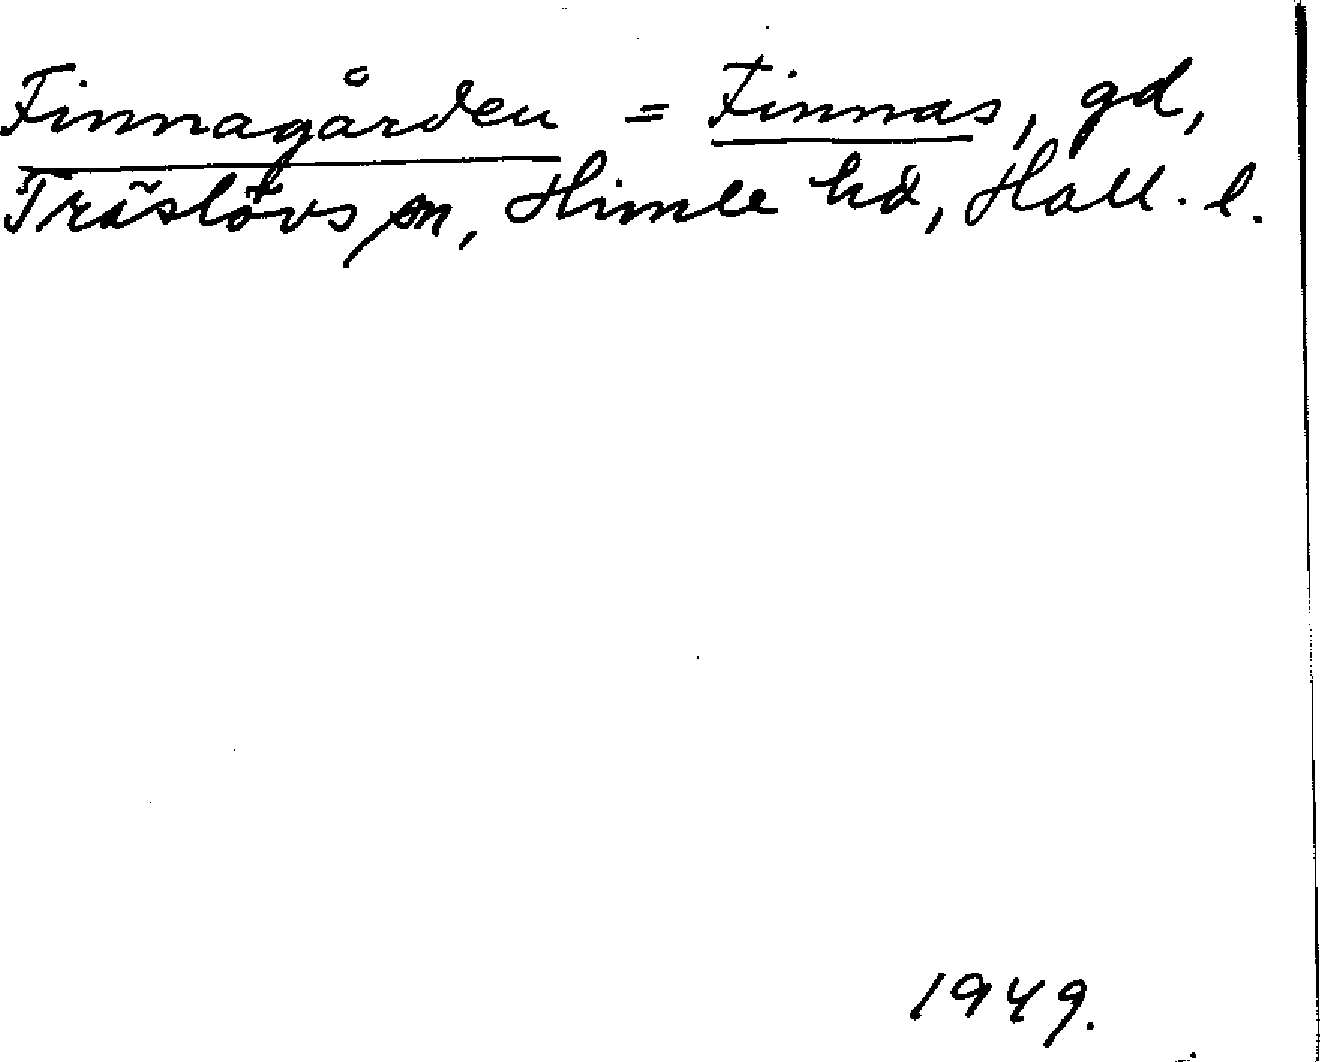 Finnagården = Finnas, gd,
Träslövs sn, Himle hd, Hall. l.
1949.